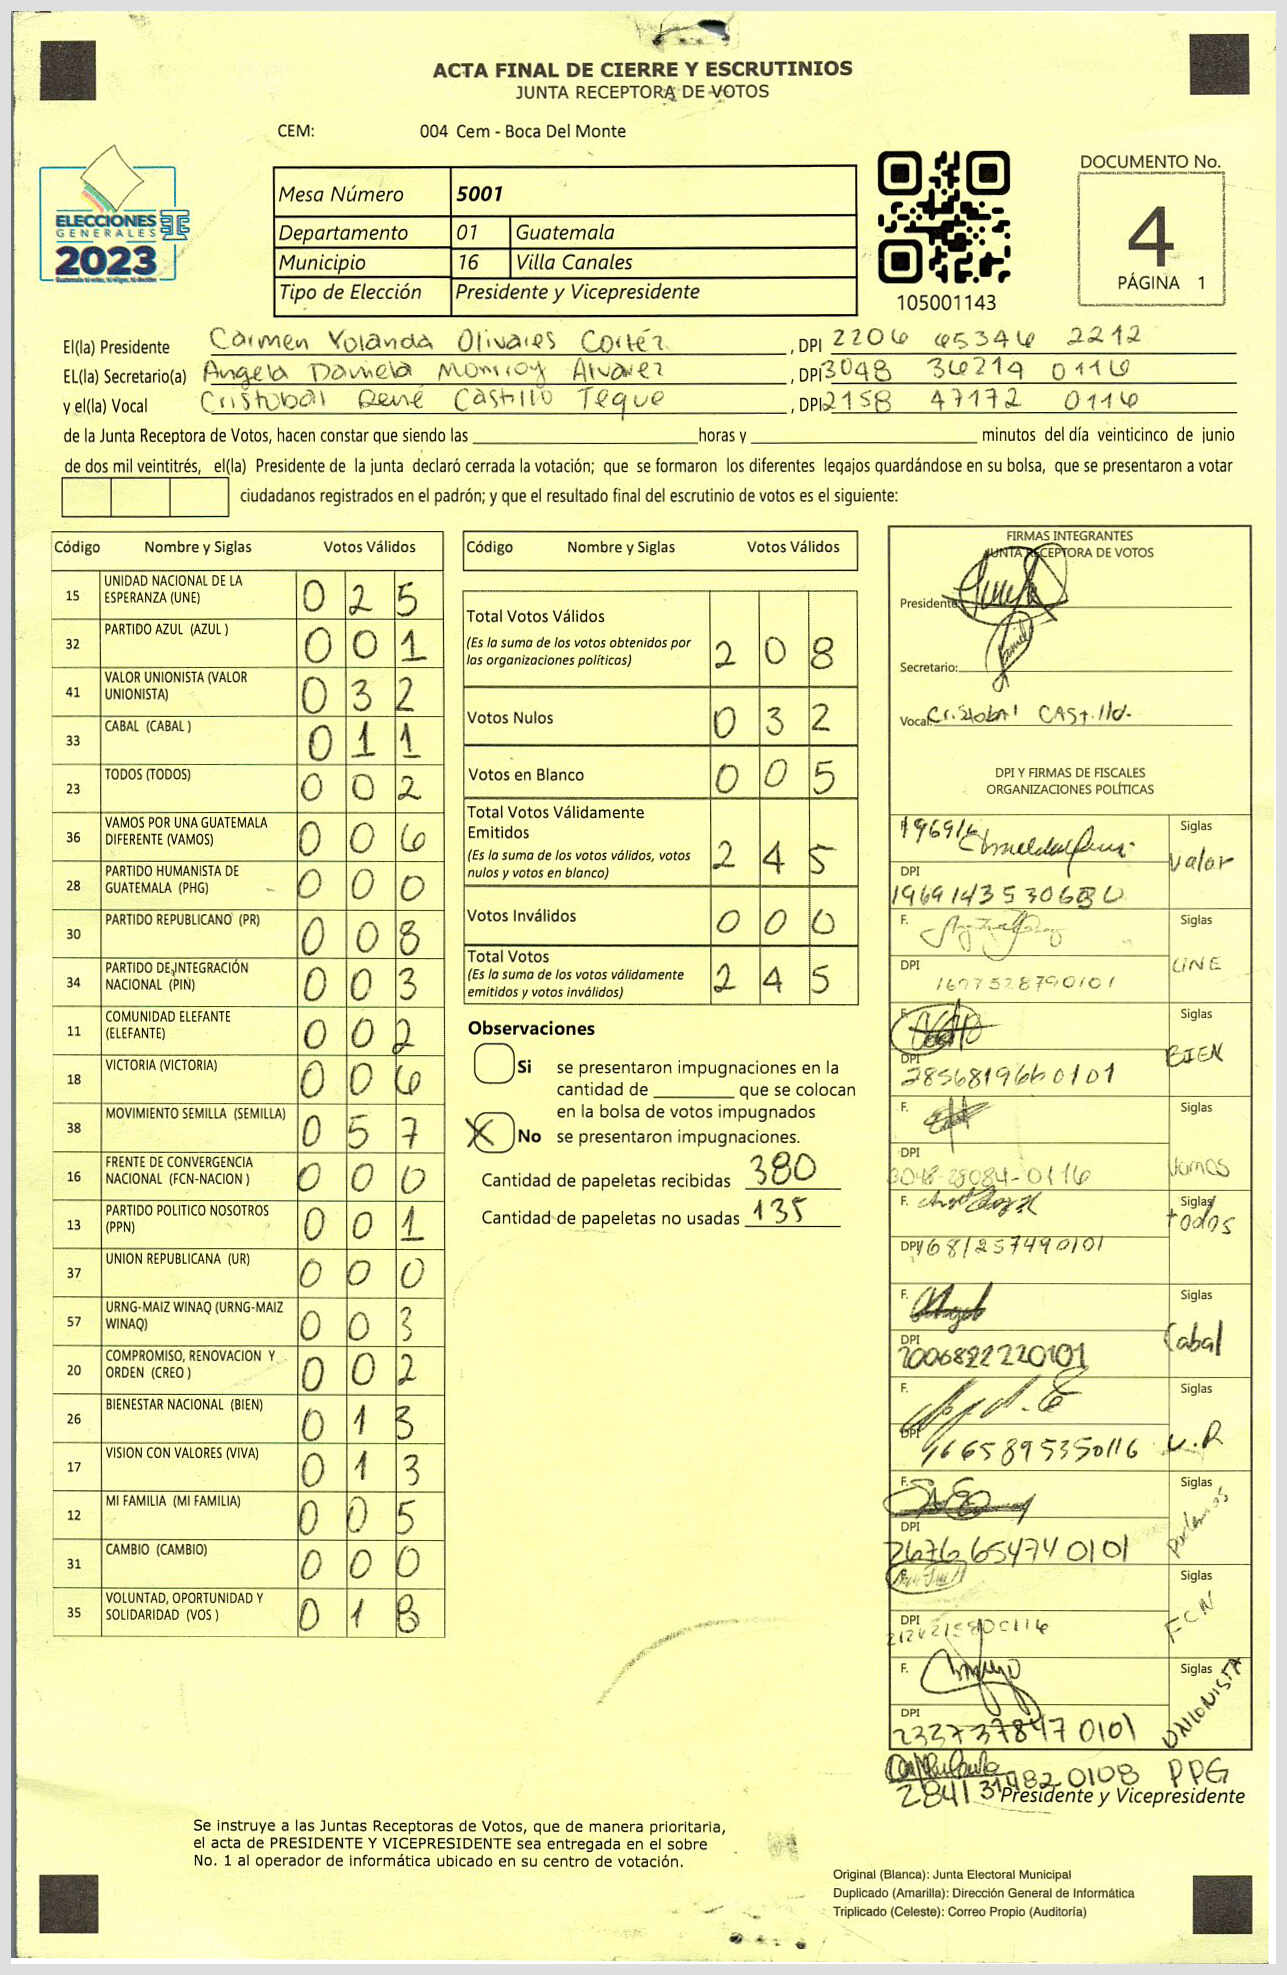 ACTA FINAL DE CIERRE Y ESCRUTINIOS
JUNTA RECEPTORA DE VOTOS
CEM: 004 Cem - Boca Del Monte
ELECCIONES
GENERALES
2023
Mesa Número 5001
Departamento 01 Guatemala
Municipio 16 Villa Canales
Tipo de Elección Presidente y Vicepresidente
105001143
DOCUMENTO No.
4
PÁGINA 1
El(la) Presidente Carmen Yolanda Olivares Cortéz, DPI 2206 65346 2212
EL(la) Secretario(a) Angela Daniela Monroy Alvarez, DPI 3048 36219 0116
y el(la) Vocal Cristobal René Castillo Teque, DPI 2158 47172 0116
de la Junta Receptora de Votos, hacen constar que siendo las horas y minutos del día veinticinco de junio
de dos mil veintitrés, el(la) Presidente de la junta declaró cerrada la votación; que se formaron los diferentes legajos quardándose en su bolsa, que se presentaron a votar
ciudadanos registrados en el padrón; y que el resultado final del escrutinio de votos es el siguiente:
Código Nombre y Siglas Votos Válidos
15 UNIDAD NACIONAL DE LA ESPERANZA (UNE) 0 2 5
32 PARTIDO AZUL (AZUL ) 0 0 1
41 VALOR UNIONISTA (VALOR UNIONISTA) 0 3 2
33 CABAL (CABAL ) 0 1 1
23 TODOS (TODOS) 0 0 2
36 VAMOS POR UNA GUATEMALA DIFERENTE (VAMOS) 0 0 6
28 PARTIDO HUMANISTA DE GUATEMALA (PHG) 0 0 0
30 PARTIDO REPUBLICANO (PR) 0 0 8
34 PARTIDO DE INTEGRACIÓN NACIONAL (PIN) 0 0 3
11 COMUNIDAD ELEFANTE (ELEFANTE) 0 0 2
18 VICTORIA (VICTORIA) 0 0 6
38 MOVIMIENTO SEMILLA (SEMILLA) 0 5 7
16 FRENTE DE CONVERGENCIA NACIONAL (FCN-NACION ) 0 0 0
13 PARTIDO POLITICO NOSOTROS (PPN) 0 0 1
37 UNION REPUBLICANA (UR) 0 0 0
57 URNG-MAIZ WINAQ (URNG-MAIZ WINAQ) 0 0 3
20 COMPROMISO, RENOVACION Y ORDEN (CREO ) 0 0 2
26 BIENESTAR NACIONAL (BIEN) 0 1 3
17 VISION CON VALORES (VIVA) 0 1 3
12 MI FAMILIA (MI FAMILIA) 0 0 5
31 CAMBIO (CAMBIO) 0 0 0
35 VOLUNTAD, OPORTUNIDAD Y SOLIDARIDAD (VOS ) 0 1 8
Código Nombre y Siglas Votos Válidos
Total Votos Válidos 2 0 8
(Es la suma de los votos obtenidos por
las organizaciones políticas)
Votos Nulos 0 3 2
Votos en Blanco 0 0 5
Total Votos Válidamente
Emitidos 2 4 5
(Es la suma de los votos válidos, votos
nulos y votos en blanco)
Votos Inválidos 0 0 0
Total Votos 2 4 5
(Es la suma de los votos válidamente
emitidos y votos inválidos)
Observaciones
Si se presentaron impugnaciones en la
cantidad de que se colocan
en la bolsa de votos impugnados
X No se presentaron impugnaciones.
Cantidad de papeletas recibidas 380
Cantidad de papeletas no usadas 135
FIRMAS INTEGRANTES
JUNTA RECEPTORA DE VOTOS
Presidente:
Secretario:
Vocal: Cristobal CASTillo.
DPI Y FIRMAS DE FISCALES
ORGANIZACIONES POLÍTICAS
Siglas Valor
DPI
F. Siglas UNE
DPI 1697528790101
F. Siglas BIEN
DPI 2856819660101
F. Siglas Vamos
DPI 3048-28084-0116
F. Siglas todos
DPI 1681257490101
F. Siglas Cabal
DPI 2006822220101
F. Siglas U.R
DPI 1665895350116
F. Siglas Podemos
DPI 2676 65474 0101
Siglas FCN
DPI
F. Siglas UNIONISTA
DPI 233737847 0101
284131482 0108 PPG
Presidente y Vicepresidente
Se instruye a las Juntas Receptoras de Votos, que de manera prioritaria,
el acta de PRESIDENTE Y VICEPRESIDENTE sea entregada en el sobre
No. 1 al operador de informática ubicado en su centro de votación.
Original (Blanca): Junta Electoral Municipal
Duplicado (Amarilla): Dirección General de Informática
Triplicado (Celeste): Correo Propio (Auditoría)